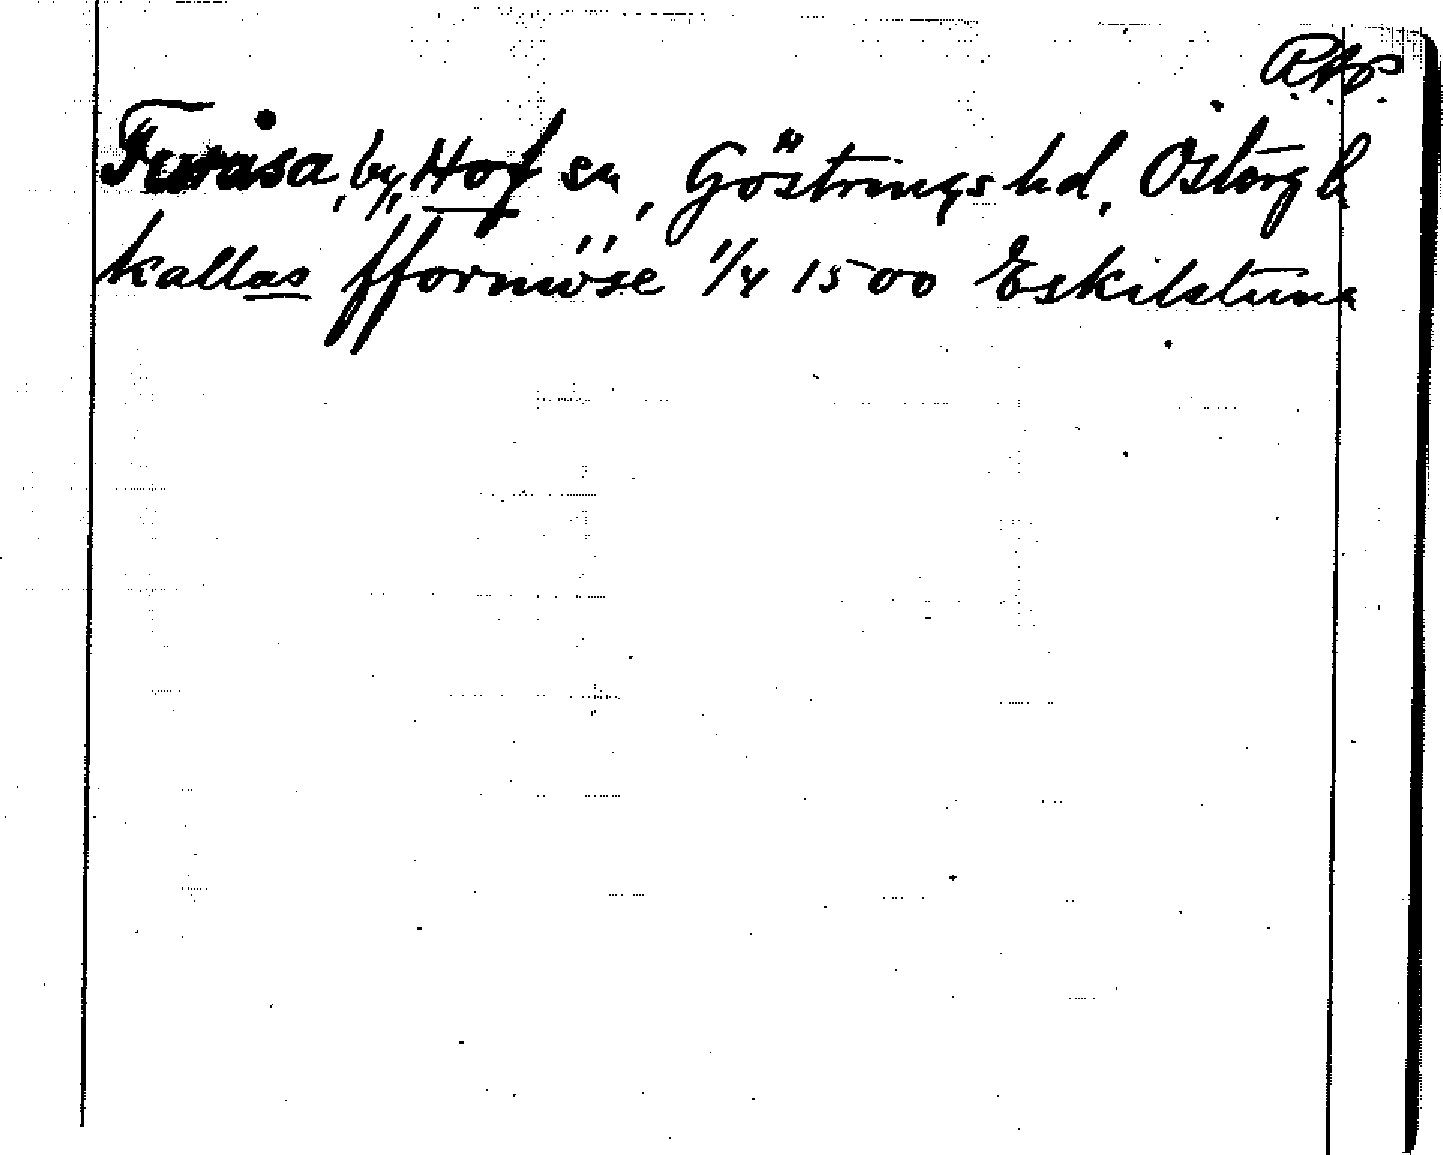 R.A.P.
Furåsa, by, Hof sn, Göstrings hd, Östergl
kallas fformöse 1/4 1500 Eskilstuna